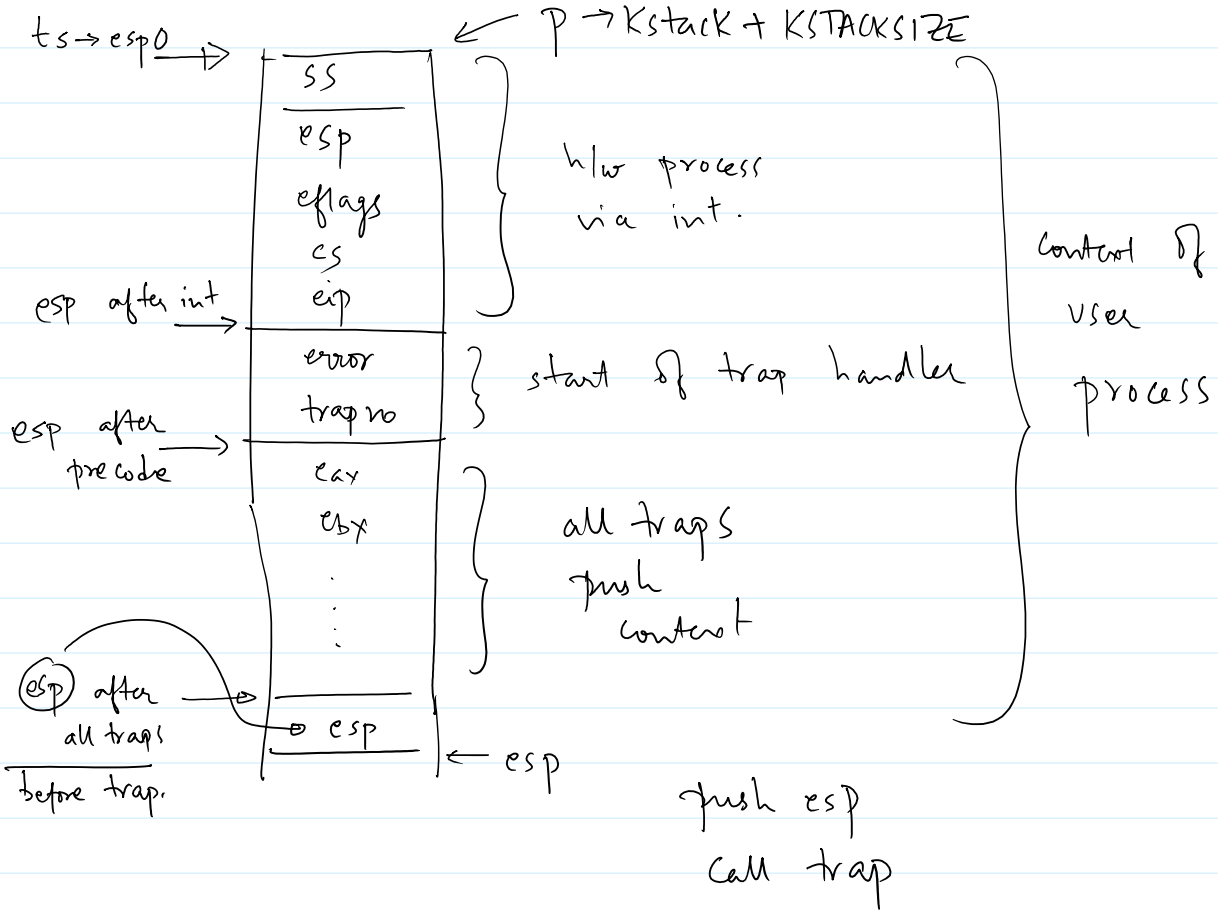 ts→esp0
p → Kstack + KSTACKSIZE
ss
esp
eflags
cs
eip
h/w process
via int.
esp after int
error
trap no
start of trap handler
esp after
precode
eax
ebx
all traps
push
context
context of
user
process
esp after
all traps
before trap.
esp
esp
push esp
call trap